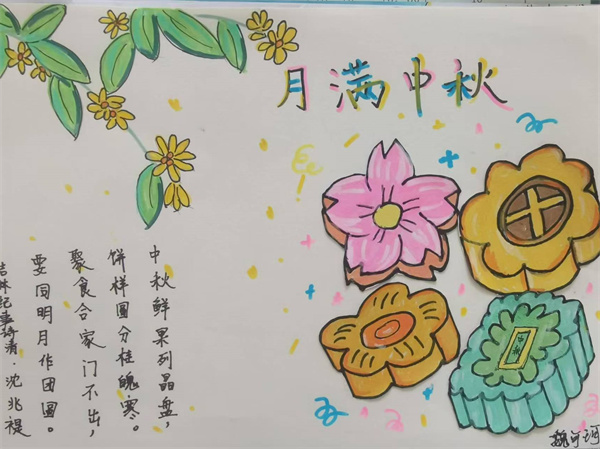 月满中秋
中秋鲜果列晶盘，
饼样圆分桂魄寒。
聚食合家门不出，
要同明月作团圆。
吉林纪事诗清·沈兆禔
魏可珂